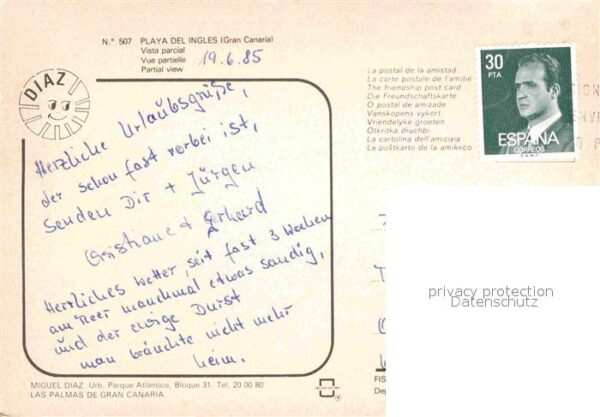 N.° 507 PLAYA DEL INGLES (Gran Canaria)
Vista parcial
Vue partielle
Partial view
19.6.85
DIAZ
Herzliche Urlaubsgrüße,
der schon fast vorbei ist,
senden Dir + Jürgen
Christiane + Gerhard
Herrliches Wetter seit fast 3 Wochen
am Meer manchmal etwas sandig,
und der ewige Durst
man bräuchte nicht mehr
heim.
La postal de la amistad
La carte postale de l'amitie
The friendship post card
Die Freundschaftskarte
O postal de amizade
Vanskopens vykort
Vriendelyke groeten
Otkritka druchbi
La cartolina dell'amicizia
La poŝtkarto de la amikeco
30
PTA
ESPAÑA
CORREOS
privacy protection
Datenschutz
MIGUEL DIAZ. Urb. Parque Atlántico, Bloque 31. Tel. 20 00 80
LAS PALMAS DE GRAN CANARIA
FIS
Dep